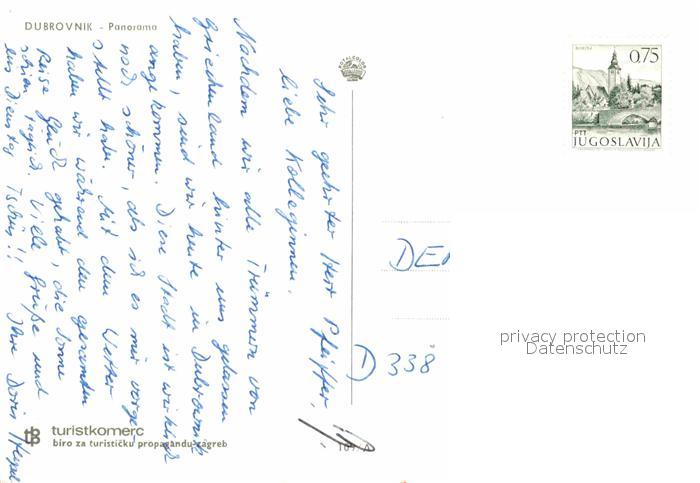 DUBROVNIK - Panorama
Sehr geehrter Herr Pfeiffer,
liebe Kolleginnen.
Nachdem wir alle Trümmer von
Griechenland hinter uns gelassen
haben, sind wir heute in Dubrovnik
angekommen. Diese Stadt ist wirklich
noch schöner, als ich es mir vorge-
stellt habe. Mit dem Wetter
haben wir während der gesamten
Reise Glück gehabt, die Sonne
schien täglich. Viele Grüße und
bis Dienstag Tschüß!! Ihre Doris
turistkomerc
biro za turističku propagandu-zagreb
0,75
PTT
JUGOSLAVIJA
DE
D 338
privacy protection
Datenschutz